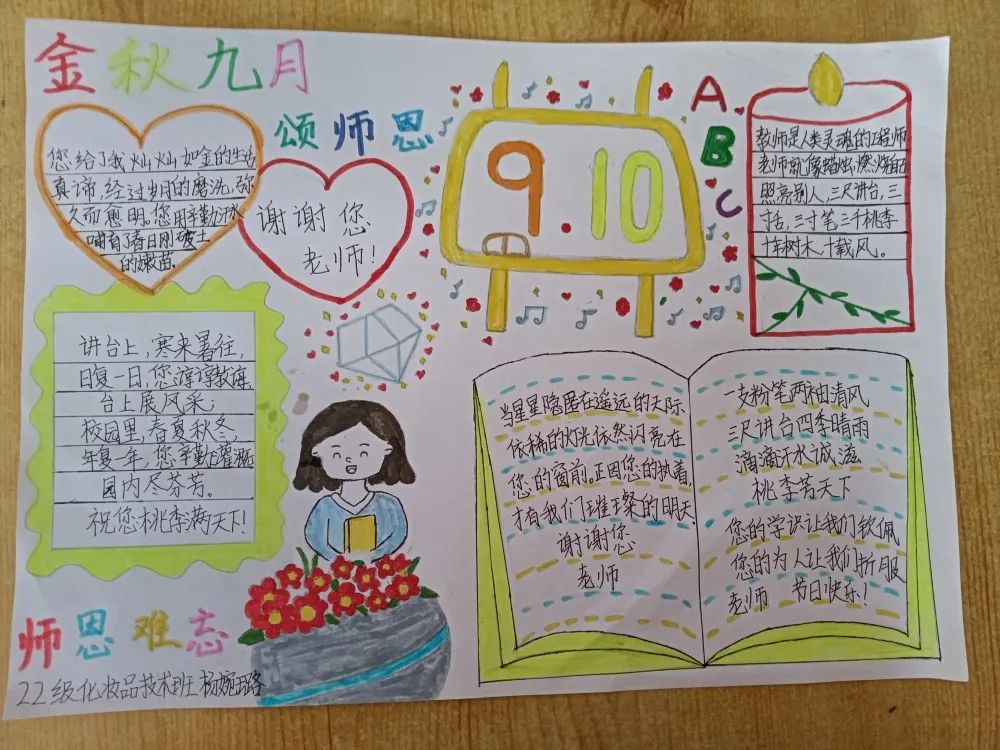 金秋九月
颂师恩
您给了我灿灿如金的生活
真谛,经过岁月的磨洗,弥
久而愈明,您用辛勤汗水
哺育了春日刚破土
的嫩苗。
谢谢您
老师!
9.10
A
B
C
教师是人类灵魂的工程师
老师就像蜡烛,燃烧自己
照亮别人,三尺讲台,三
寸舌,三寸笔三千桃李
十年树木,十载风。
讲台上,寒来暑往,
日复一日,您谆谆教诲
台上展风采;
校园里,春夏秋冬,
年复一年,您辛勤灌溉
园内尽芬芳。
祝您桃李满天下!
当星星隐匿在遥远的天际
依稀的灯光依然闪亮在
您的窗前。正因您的执着,
才有我们璀璨的明天
谢谢您
老师
一支粉笔两袖清风
三尺讲台四季晴雨
滴滴汗水诚滋
桃李芳天下
您的学识让我们钦佩
您的为人让我们折服
老师 节日快乐!
师恩难忘
22级化妆品技术班 杨婉璐